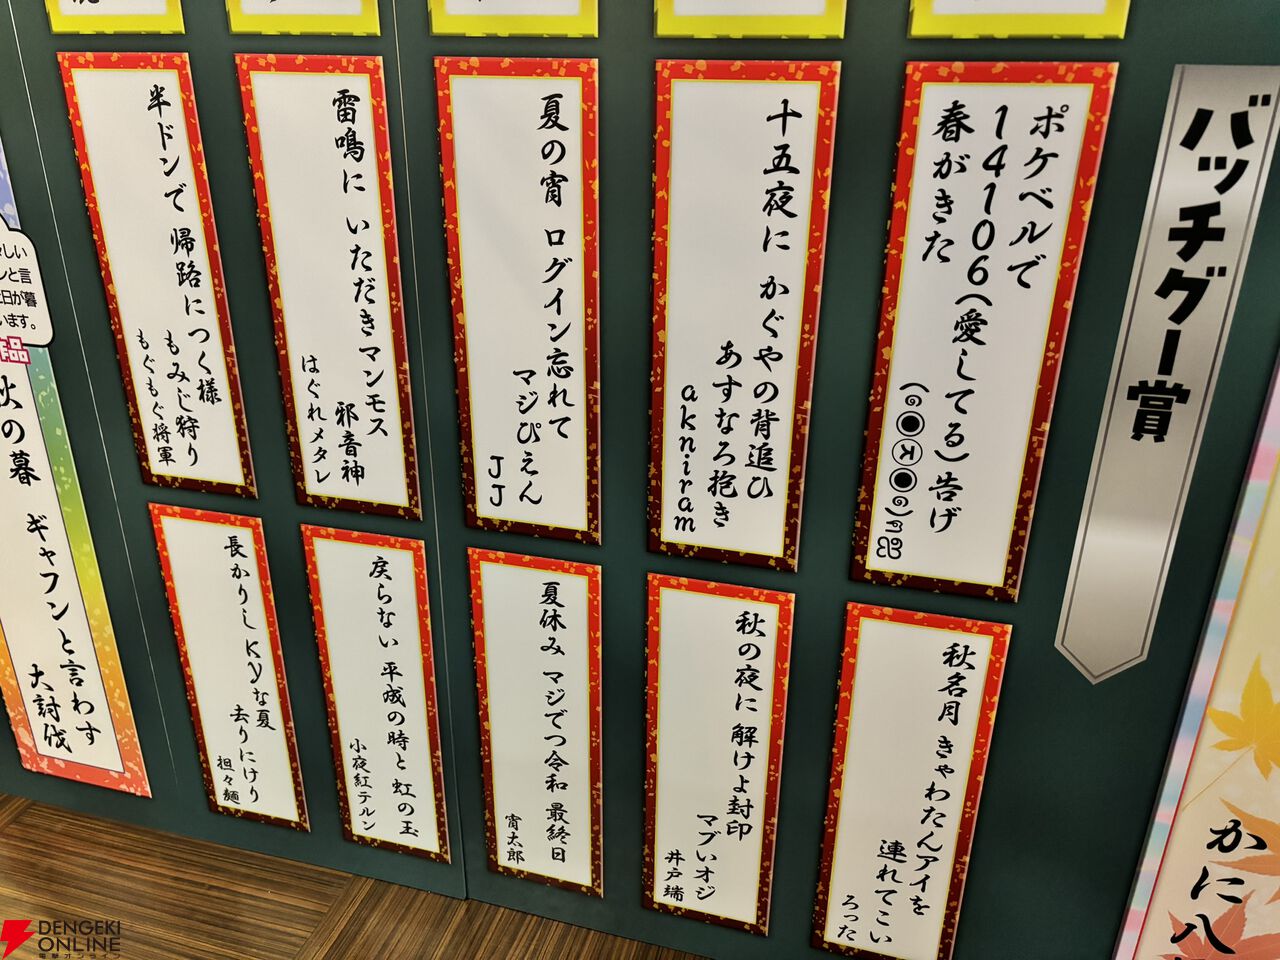 バッチグー賞
ポケベルで
14106(愛してる)告げ
春がきた
十五夜に かぐやの背追ひ
あすなろ抱き
akniram
夏の宵 ログイン忘れて
マジぴえん
JJ
雷鳴に いただきマンモス
邪音神
はぐれメタレ
半ドンで 帰路につく様
もみじ狩り
もぐもぐ将軍
秋名月 きゃわたんアイを
連れてこい
ろった
秋の夜に 解けよ封印
マブいオジ
井戸端
夏休み マジでつ令和 最終日
宵太郎
戻らない 平成の時と 虹の玉
小夜紅テルン
長かりし KYな夏
去りにけり
担々麺
しい
ンと言
日が暮
います。
作品
秋の暮 ギャフンと言わす
大討伐
かに八
DENGEKI
ONLINE
電撃オンライン